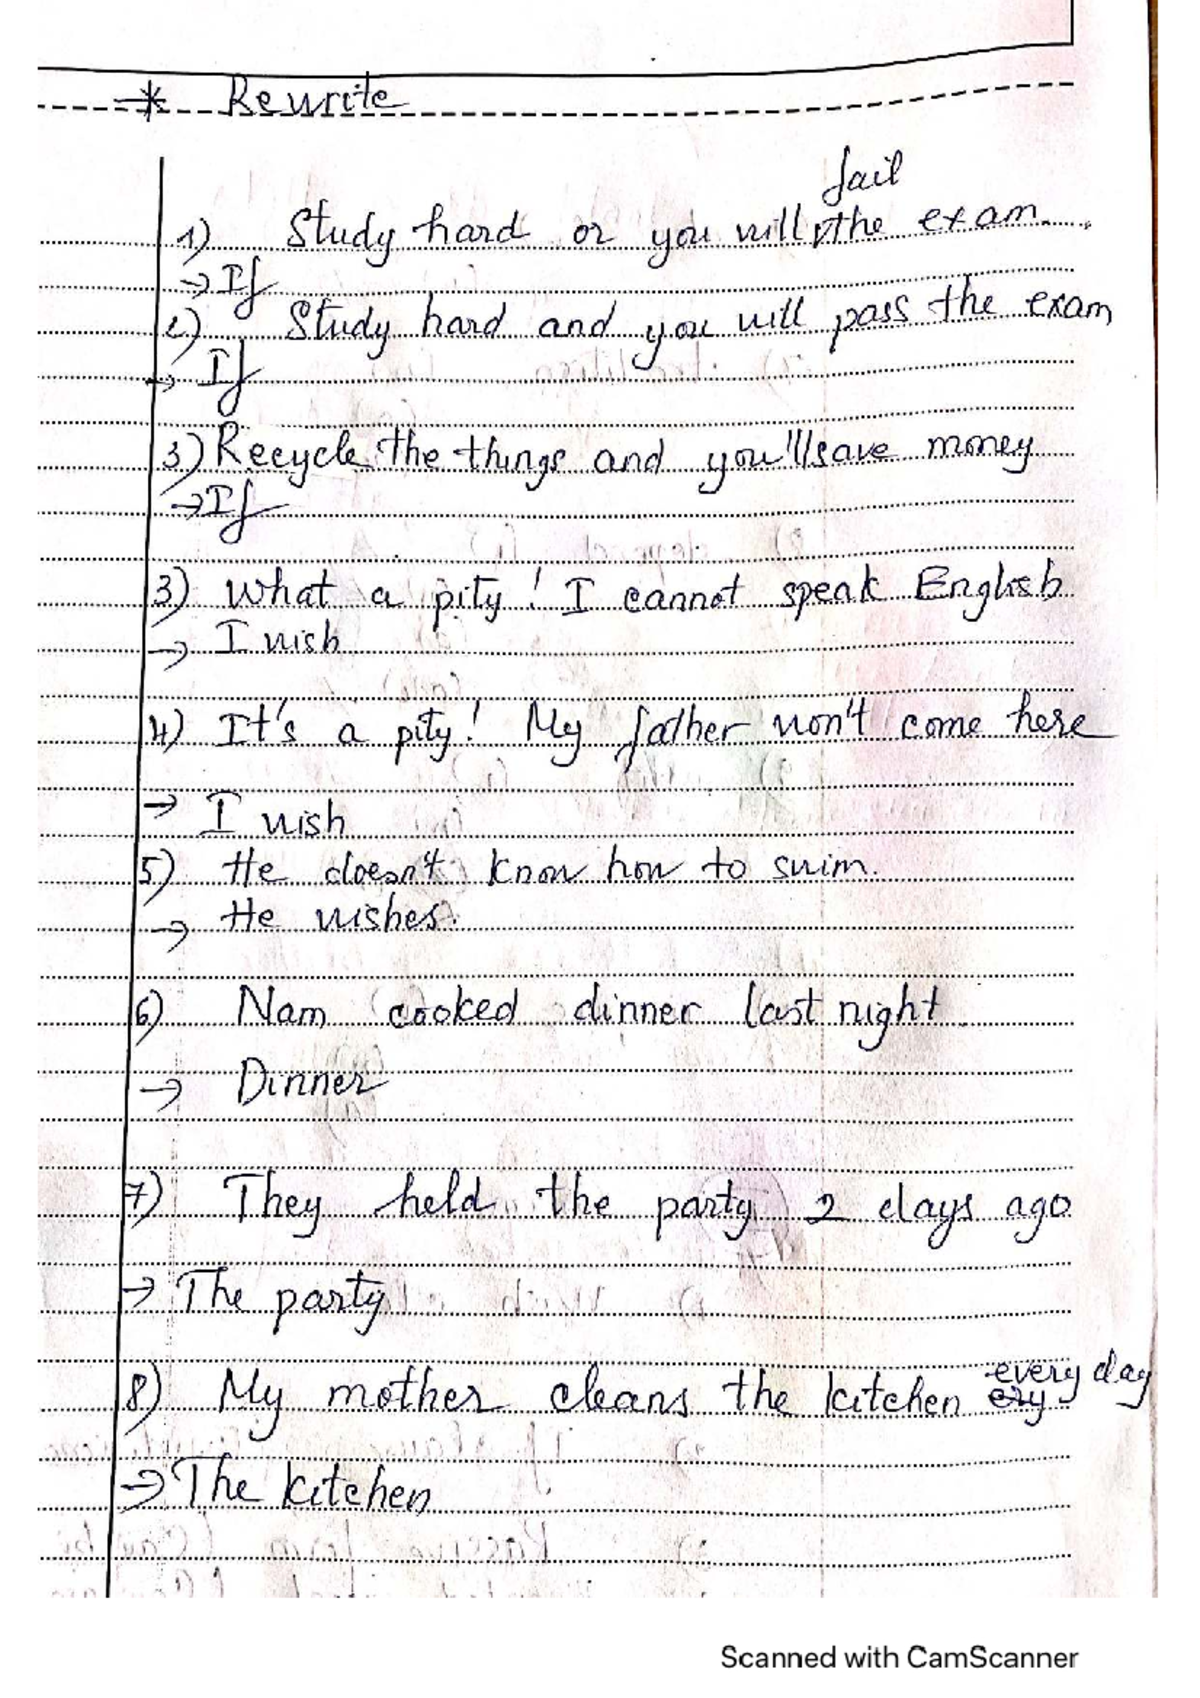 * Rewrite
fail
1) Study hard or you will the exam.
→ If
2) Study hard and you will pass the exam
→ If
3) Recycle the things and you'll save money
→ If
3) What a pity! I cannot speak English
→ I wish
4) It's a pity! My father won't come here
→ I wish
5) He doesn't know how to swim.
→ He wishes.
6) Nam cooked dinner last night
→ Dinner
7) They held the party 2 days ago
→ The party
8) My mother cleans the kitchen every day
→ The kitchen
Scanned with CamScanner